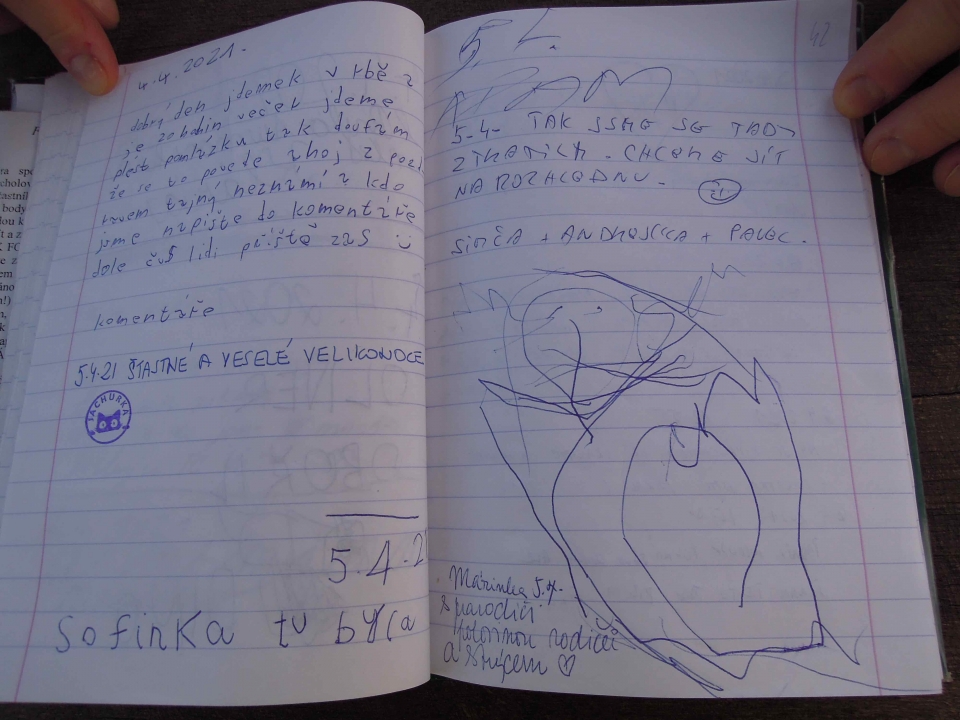 4.4.2021.
dobrý den jdemek v rbě z
je 20 hodin večer jdeme
plést pomlázku tak doufám
že se to povede zhoj z
tajný neznámí z kdo
jsme napište do komentáře
dole čus lidi příště zas
komentáře
5.4.21 ŠTASTNÉ A VESELÉ VELIKONOCE
JACHURKA
5.4.21
sofinka tu byla
42
5. 4.
ADAM
5.4. TAK JSME SE TADY
ZTRATILI. CHCEME JÍT
NA ROZHLEDNU.
SIMČA + ANDREJKA + PAVEL.
Mařinka 5.4.
s parodičí
polovinou rodičů
a strýcem ♡